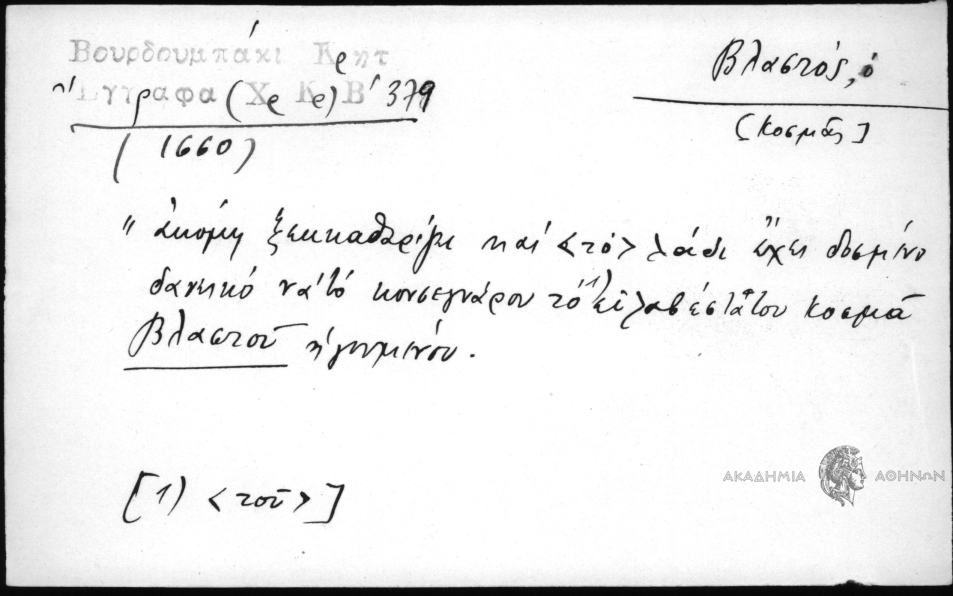 Βουρδουμπάκι Κρητ
Ἔγγραφα (Χρ Κρ) Β' 379
(1660)
Βλαστός, ὁ
[Κοσμᾶς]
"ἀκόμη ξεκκαθαρίζει καί <τό> λάδι ἔχει δοσμένο
δανεικό νά τό κονσεγνάρου τό ¹⁾ εὐλαβέστατου Κοσμᾶ
Βλαστοῦ ἡγουμένου.
[1) <τοῦ>]
ΑΚΑΔΗΜΙΑ ΑΘΗΝΩΝ